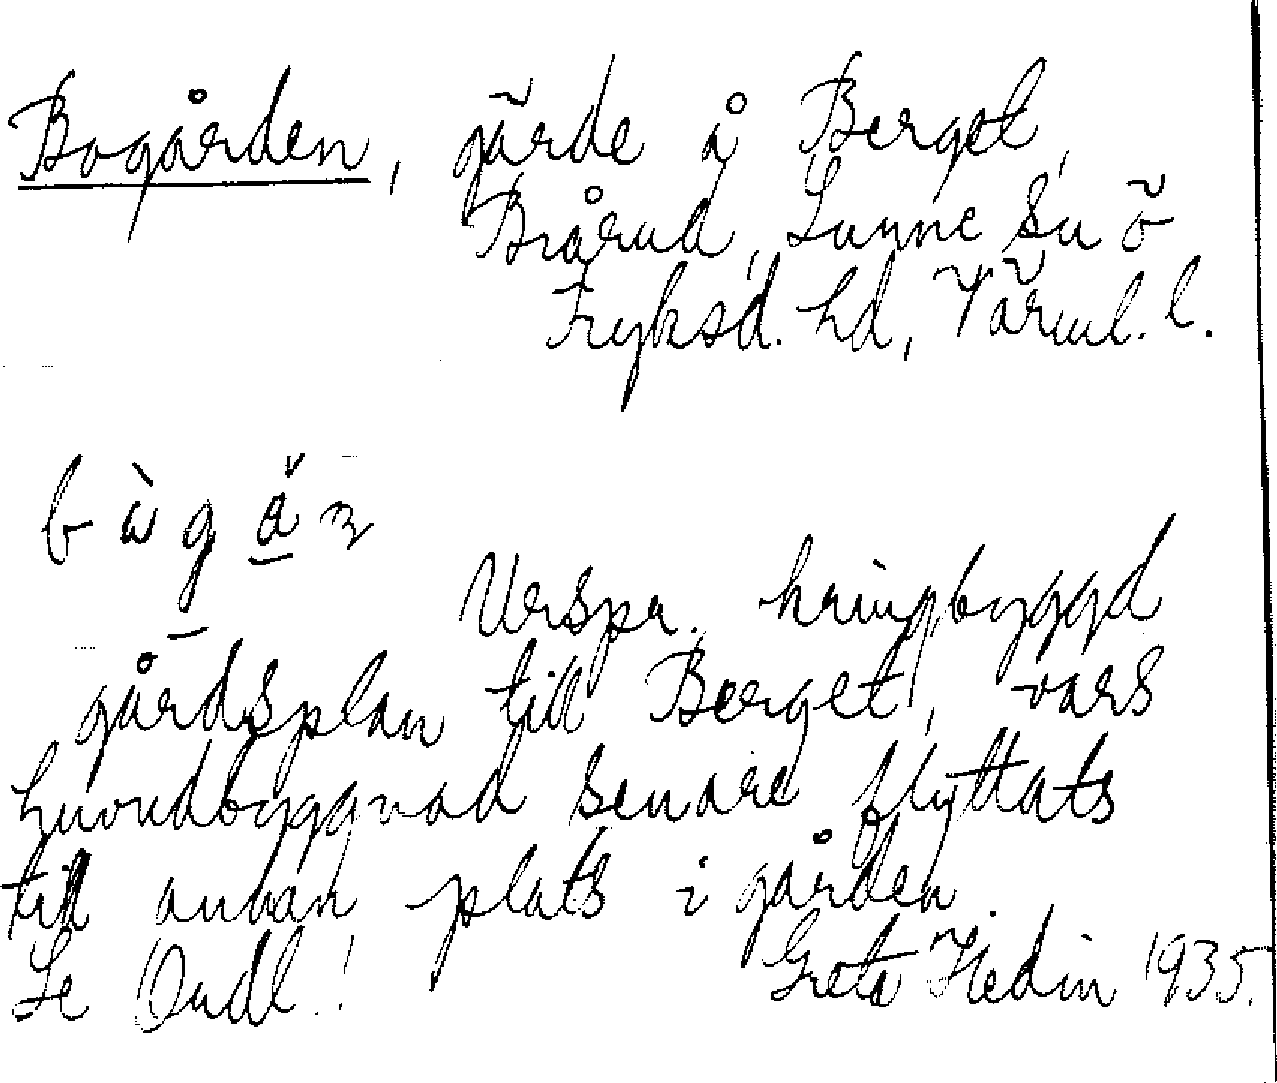 Bogården, gärde å Berget,
Brårud, Sunne Sn ö
Fryksd. hd, Värml. l.
Urspr. kringbyggd
gårdsplan till Berget, vars
huvudbyggnad senare flyttats
till annan plats i gården.
Se Oudl.!
Greta Hedin 1935.